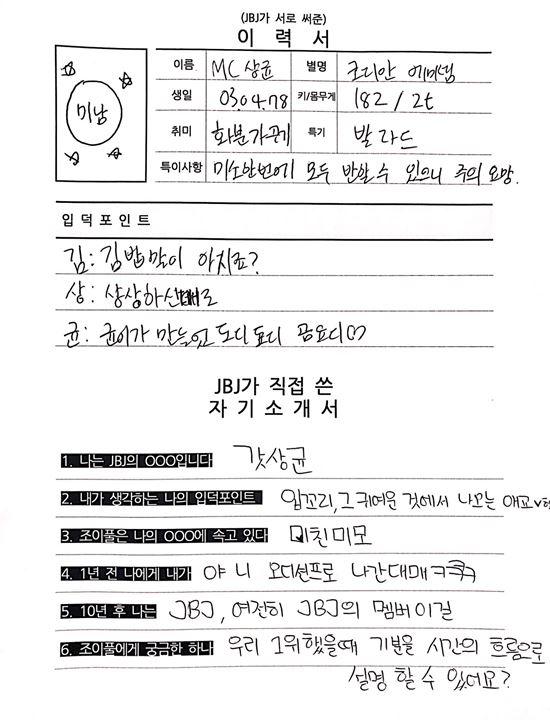 (JBJ가 서로 써준)
이 력 서
미남
이름 MC상균 별명 코디안 에미넴
생일 03.04.78 키/몸무게 182 / 2t
취미 화분가꾸기 특기 발라드
특이사항 미소한번에 모두 반할 수 있으니 주의 요망.
입 덕 포 인 트
김: 김밥말이 아시죠?
상: 상상하신대로
균: 균이가 만들었 도디 표디 곰요디♡
JBJ가 직접 쓴
자 기 소 개 서
1. 나는 JBJ의 OOO입니다 갓상균
2. 내가 생각하는 나의 입덕포인트 입꼬리, 그 귀여운 것에서 나오는 애교
3. 조이풀은 나의 OOO에 속고 있다 미친미모
4. 1년 전 나에게 내가 야 니 오디션프로 나간대매ㅋㅋㅋ
5. 10년 후 나는 JBJ, 여전히 JBJ의 멤버이길
6. 조이풀에게 궁금한 하나 우리 1위했을때 기분을 시간의 흐름으로
설명 할 수 있어요?